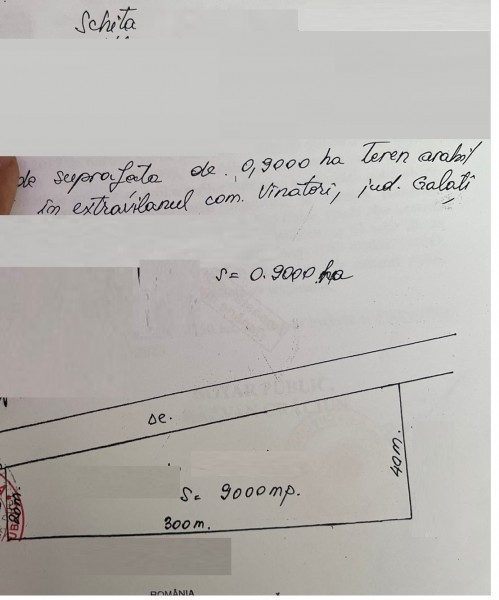 Schița
de suprafata de 0,9000 ha Teren arabil
în extravilanul com. Vînatori, jud. Galati
S= 0.9000 ha
NOTAR PUBLIC
De.
40m.
20m.
S= 9000mp.
300m.
ROMÂNIA